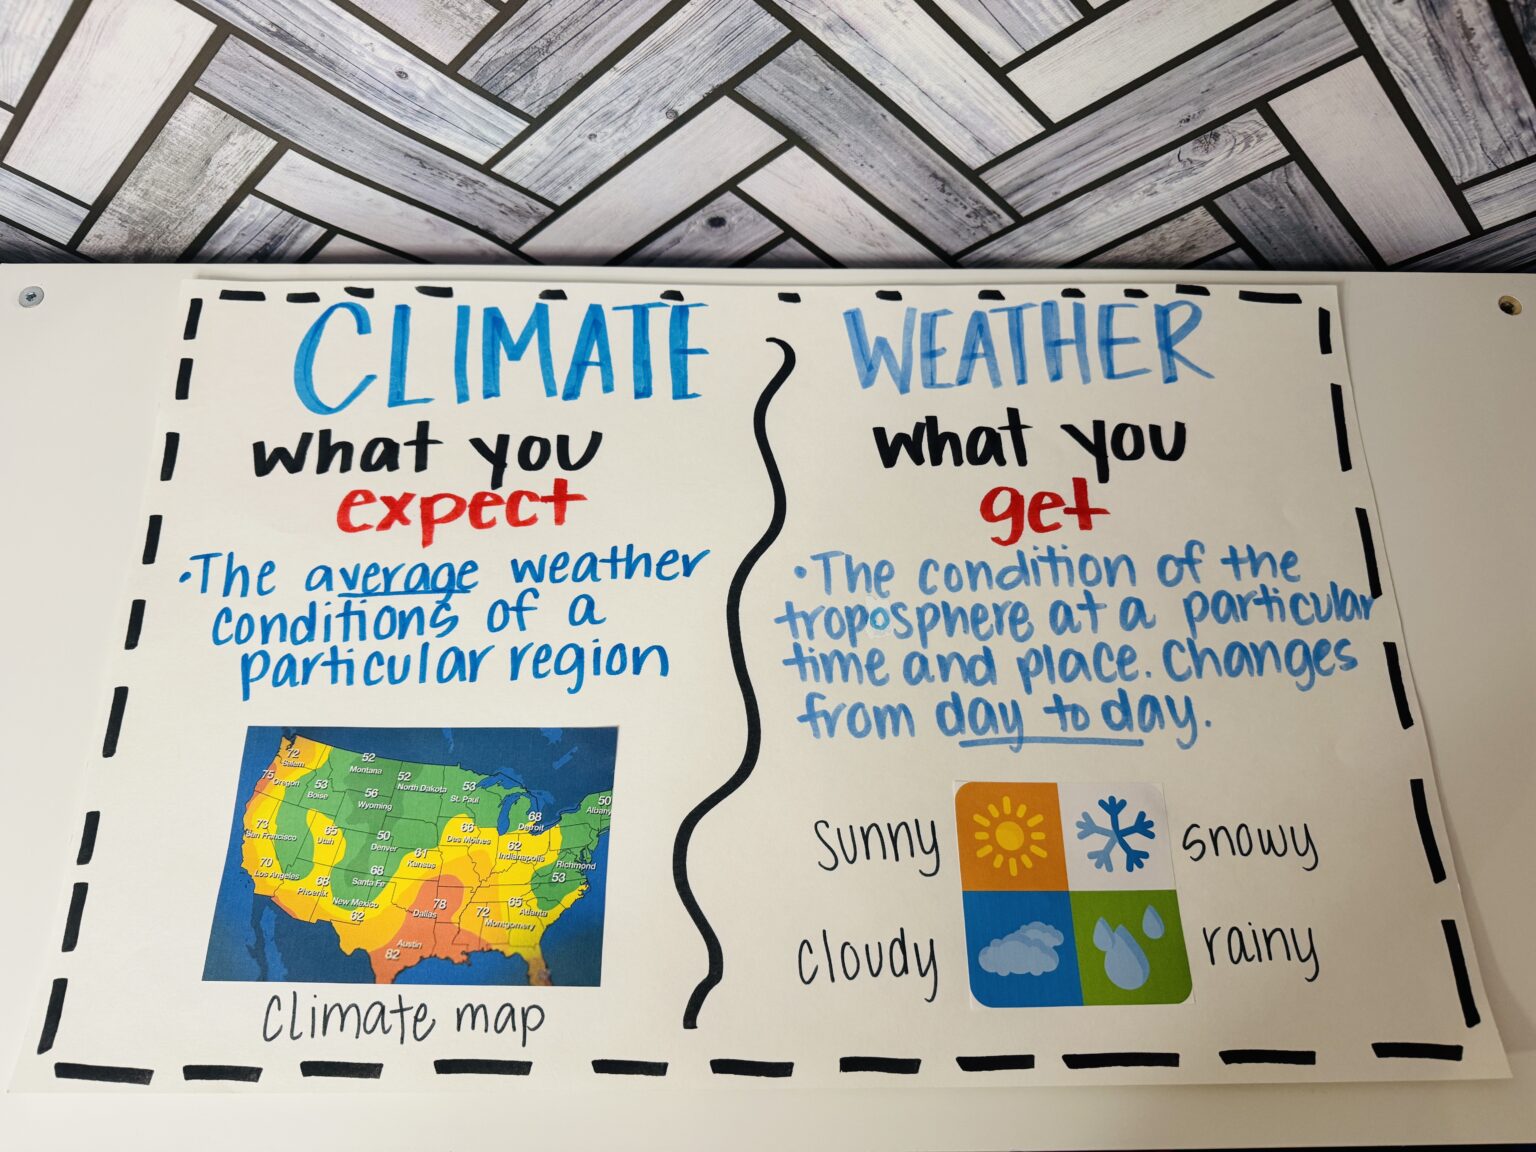 CLIMATE
what you
expect
•The average weather
conditions of a
particular region
72
Salem
75
Oregon
52
Montana
52
North Dakota
53
St. Paul
53
Boise
56
Wyoming
50
Albany
68
Detroit
73
San Francisco
65
Utah
50
Denver
66
Des Moines
62
Indianapolis
61
Kansas
Richmond
53
70
Los Angeles
68
Phoenix
68
Santa Fe
New Mexico
62
78
Dallas
72
Montgomery
65
Atlanta
Austin
82
Climate map
WEATHER
what you
get
•The condition of the
troposphere at a particular
time and place. Changes
from day to day.
sunny
snowy
cloudy
rainy